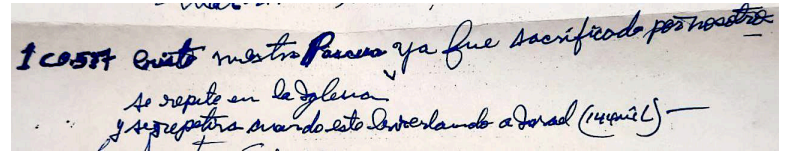 1 Co 5:7 Cristo nuestra Pascua ya fue sacrificada por nosotros
se repite en la Iglesia
y se repetira cuando este a Israel (144 mil) —